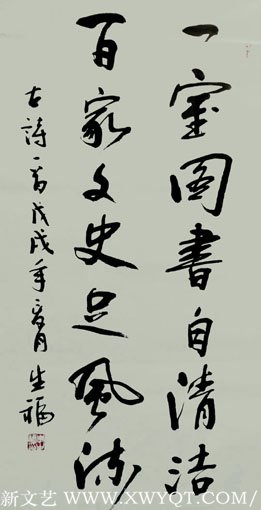 一室图書自清洁
百家文史足风流
古詩一首戊戌年春月生福
新文艺 WWW.XWYQT.COM/